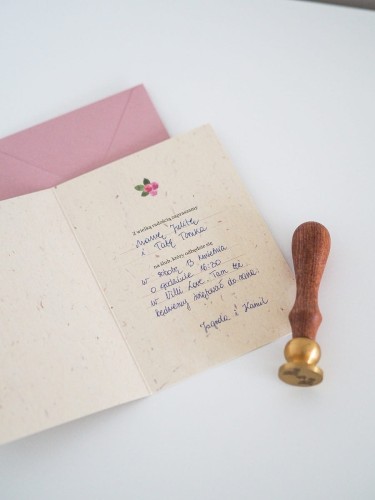 Z wielką radością zapraszamy
Mamę Julitę
i Tatę Tomka
na ślub, który odbędzie się
w sobotę 13 kwietnia
o godzinie 16:30
w Villi Love. Tam też
będziemy świętować do rana.
Jagoda i Kamil